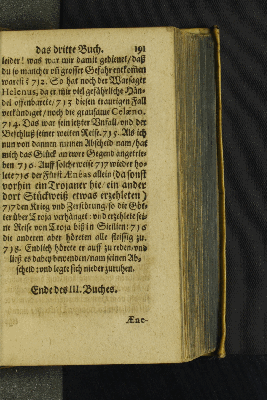 das dritte Buch. 191
leider! was war mir damit gedienet/daß
du so mancher vñ grosser Gefahr entkom̃en
warest? 712. So hat noch der Warsager
Helenus, da er mir viel gefährliche Hän-
del offenbarete/713 diesen traurigen Fall
verkündiget/noch die grausame Celæno.
714. Das war sein letzter Unfall/und der
Beschluß seiner weiten Reise. 715. Als ich
nun von dannen meinen Abscheid nam/hat
mich das Glück an ewre Gegend angetrie-
ben 716. Auff solche weise 717 wieder ho-
lete 716 der Fürst Æneas allein (da sonst
vorhin ein Trojaner hie/ein ander
dort Stückweiß etwas erzehleten)
717 den Krieg und Zerstörung/so die Göt-
ter über Troja verhänget: und erzehlete sei-
ne Reise von Troja biß in Sicilien: 716
die anderen aber höreten alle fleissig zu.
718. Endlich hörete er auff zu reden/und
ließ es dabey bewenden/nam seinen Ab-
scheid: und legte sich nieder zu ruhen.
Ende des III. Buches.
Æne-